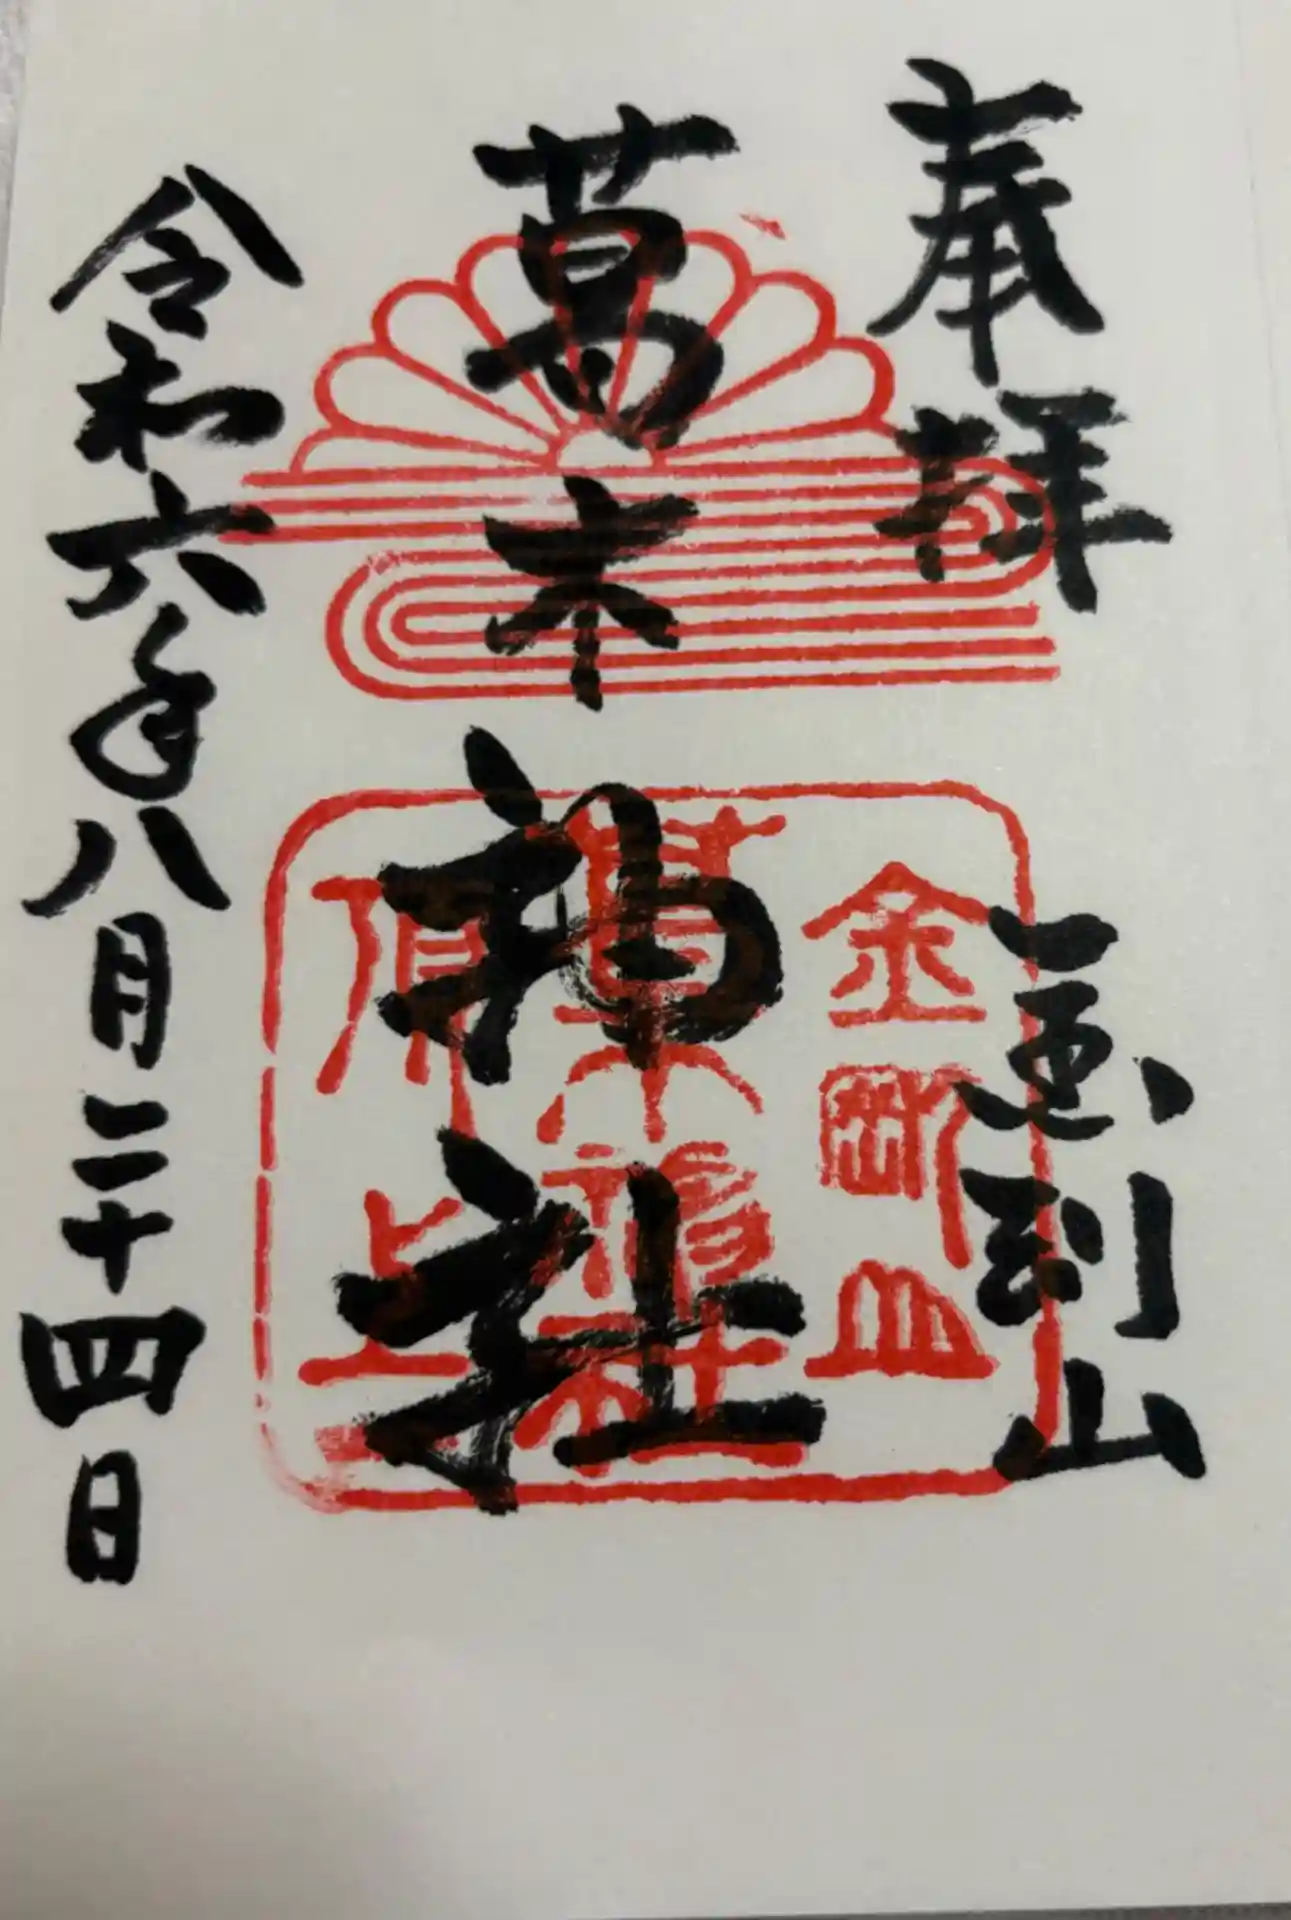 奉拝
山
葛木神社
令和六年八月二十四日
金剛山
葛木神社